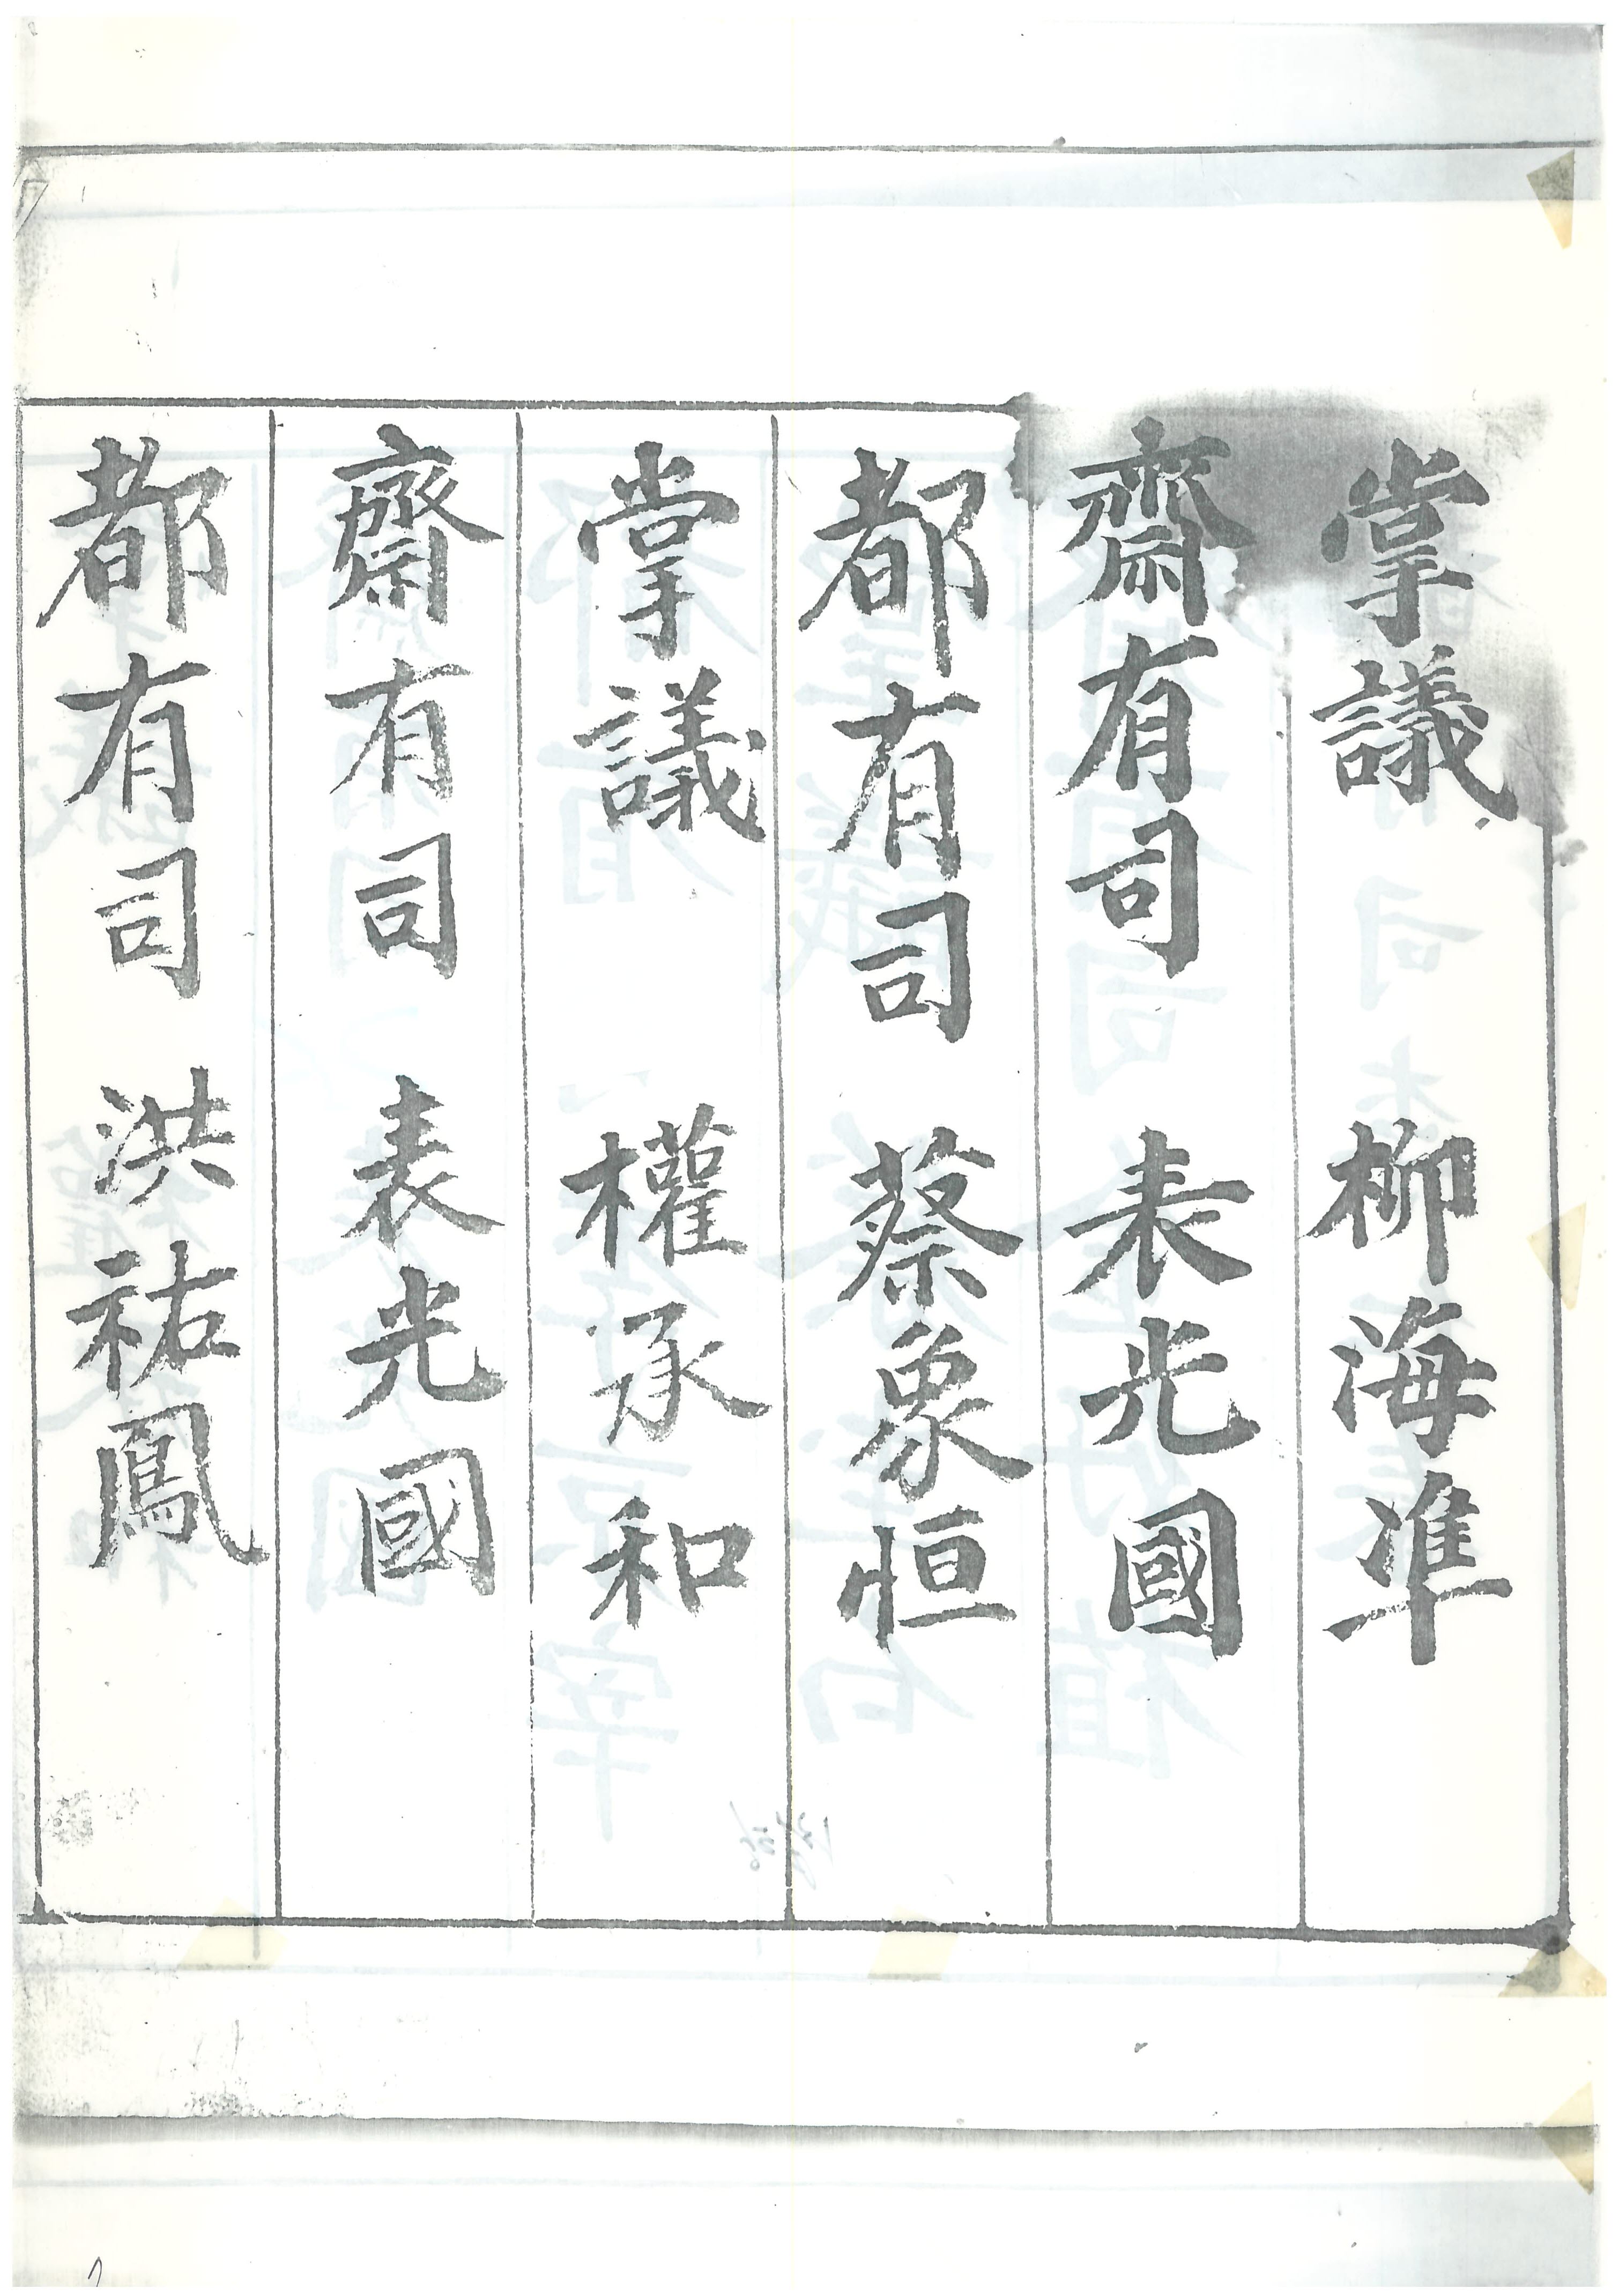 掌議 柳海準
齋有司 表光國
都有司 蔡象恒
掌議 權承和
齋有司 表光國
都有司 洪祐鳳